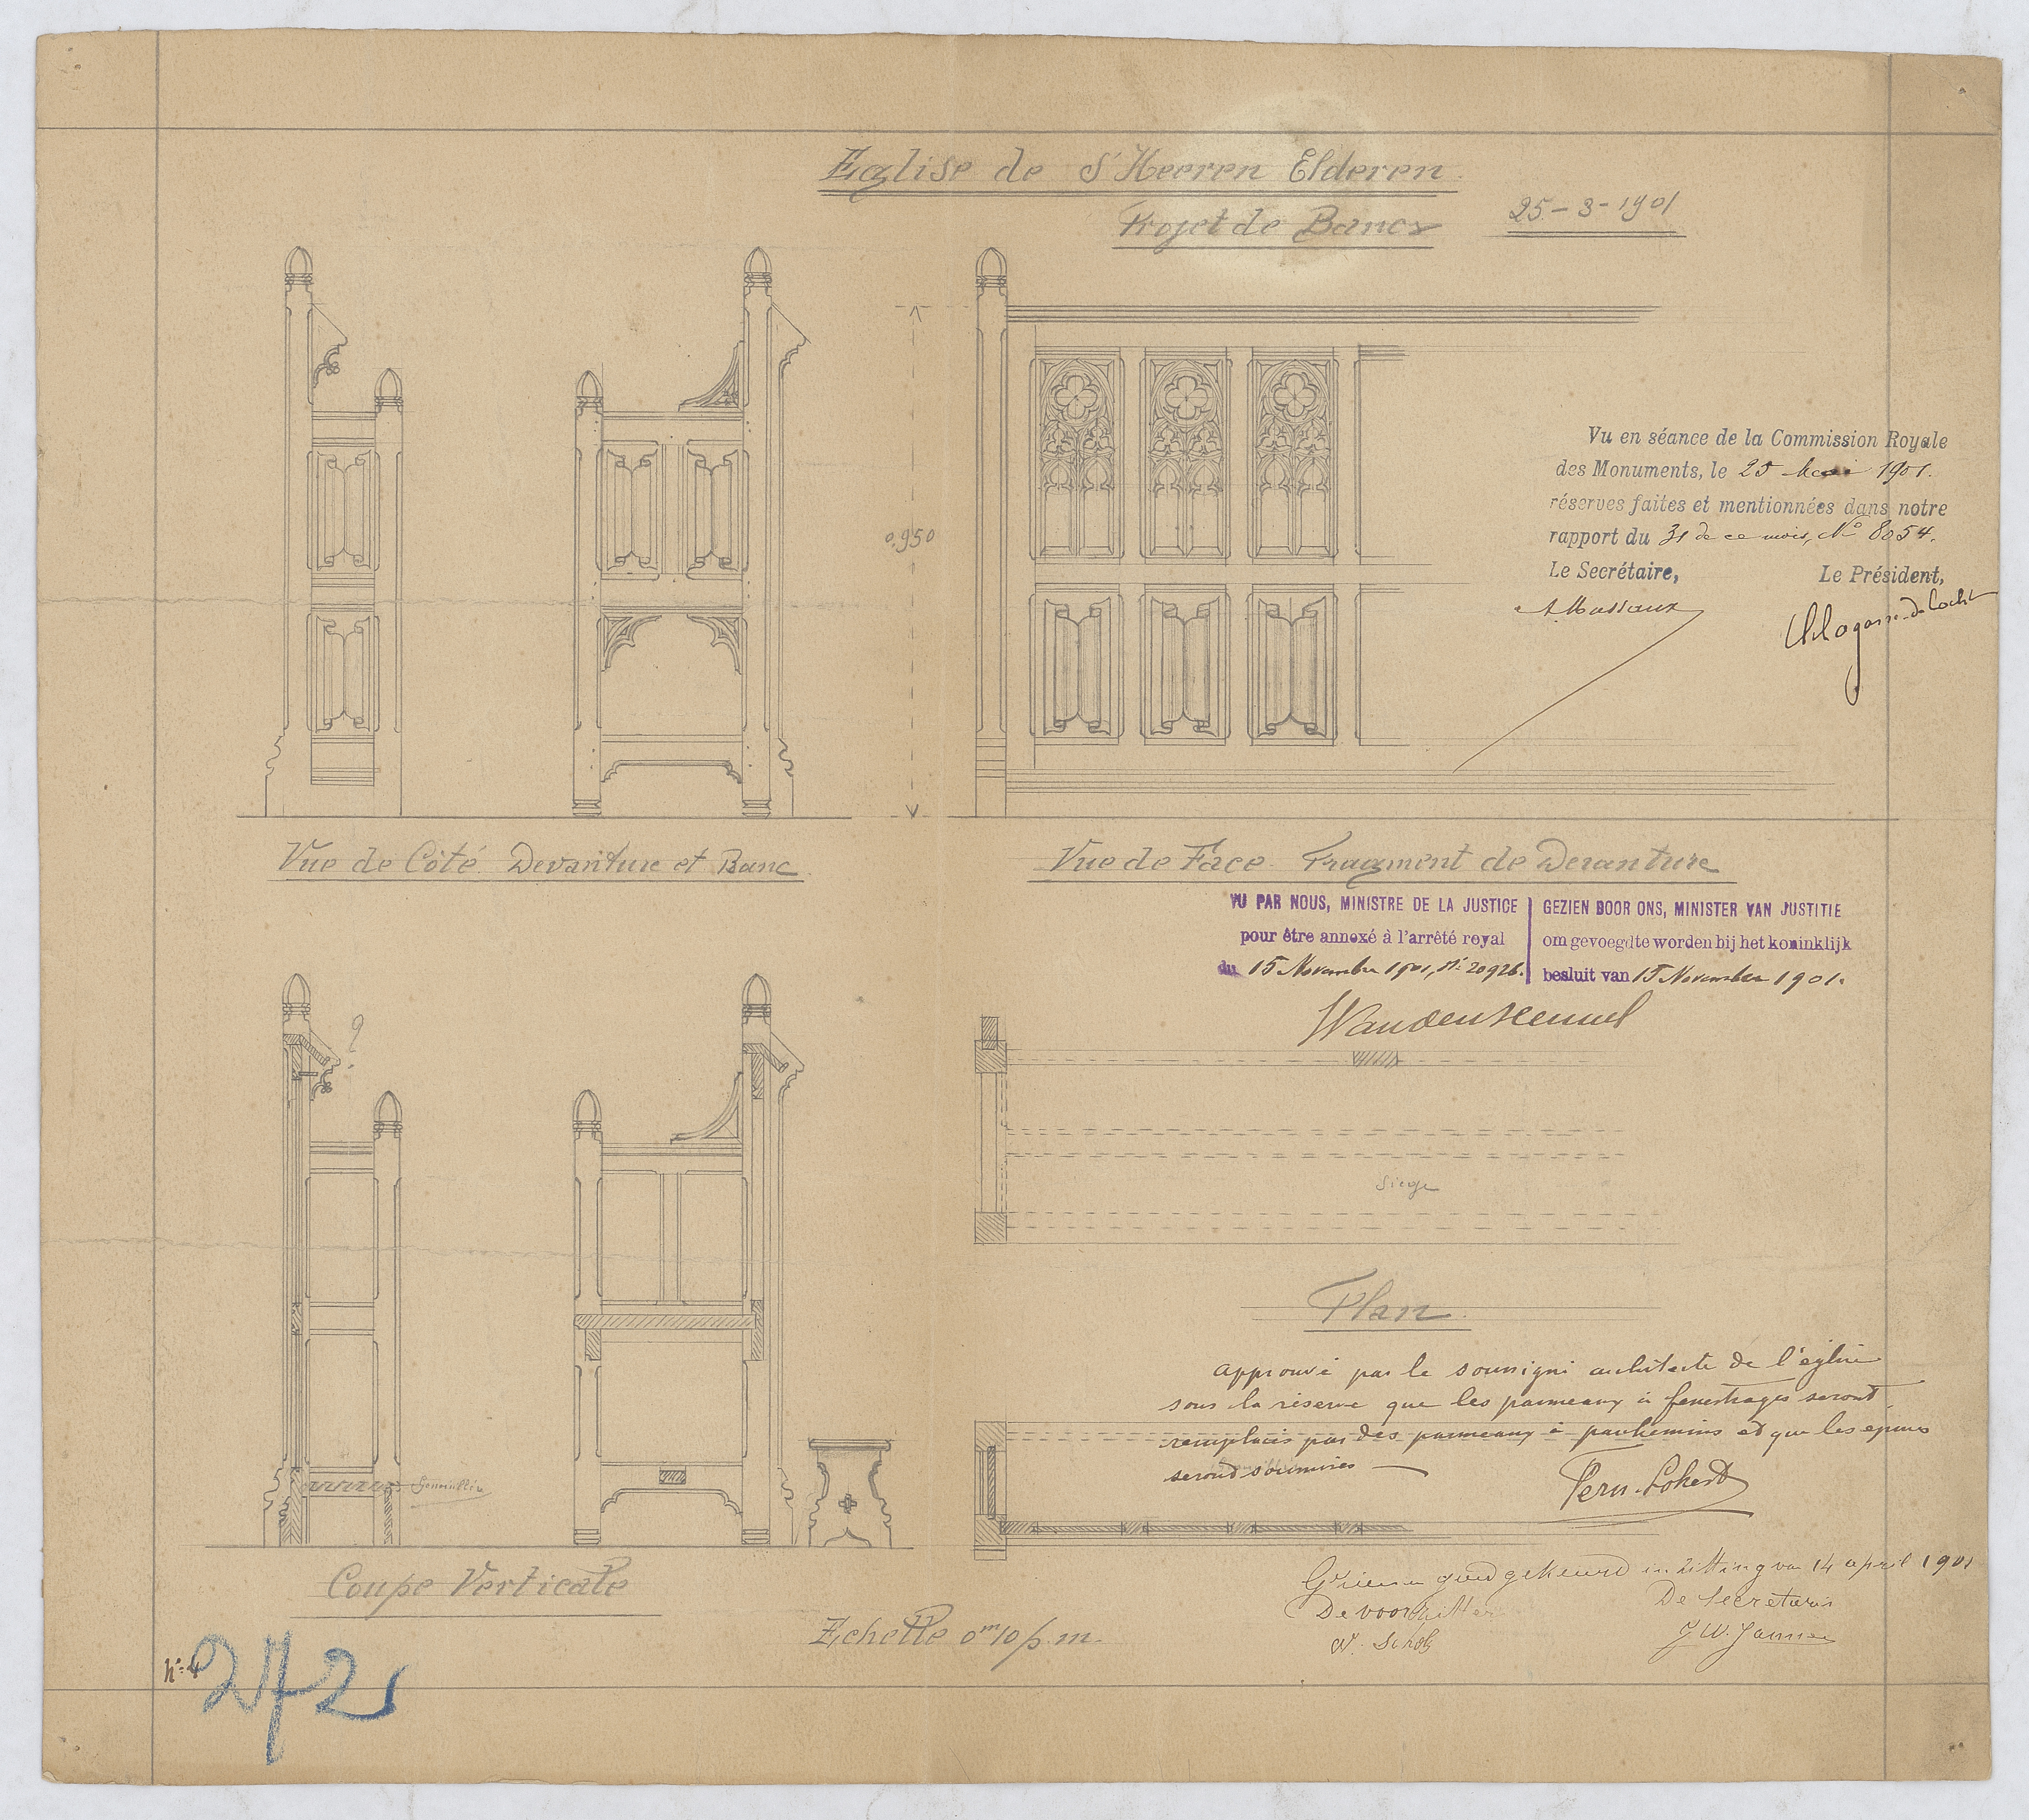 Eglise de S'Heeren Elderen.
Projet de Bancs
25-3-1901
0.950
Vu en séance de la Commission Royale
des Monuments, le 25 Mai 1901.
réserves faites et mentionnées dans notre
rapport du 31 de ce mois, N° 8054.
Le Secrétaire,
Le Président,
A. Massaux
Lagasse-de Locht
Vue de Côté. Devanture et Banc.
Vue de Face. Fragment de Devanture
VU PAR NOUS, MINISTRE DE LA JUSTICE
pour être annexé à l'arrêté royal
du 15 Novembre 1901, N° 20926.
GEZIEN DOOR ONS, MINISTER VAN JUSTITIE
om gevoegd te worden bij het koninklijk
besluit van 15 November 1901.
?
Siège
Plan.
approuvé par le soussigné architecte de l'église
sous la réserve que les panneaux à fenestrages seront
remplacés par des panneaux à parchemins et que les épures
seront soumises
Genouillère
Coupe Verticale
Echelle 0m10 p. m.
goedgekeurd in zitting van 14 april 1901
De voorzitter
De Secretaris
N° 4
272